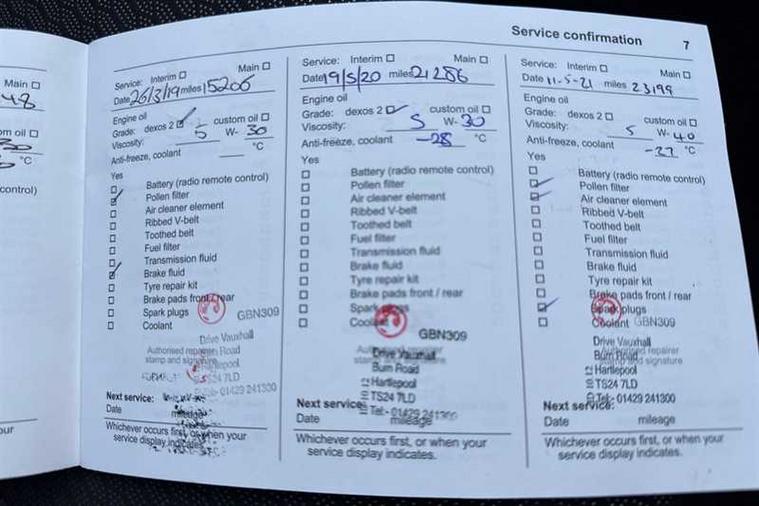 Service confirmation 7
Main
48
om oil
°C
control)
our
Service: Interim Main
Date 26/3/19 miles 15206
Engine oil
Grade: dexos 2 custom oil
Viscosity: 5 W- 30
Anti-freeze, coolant °C
Yes
Battery (radio remote control)
Pollen filter
Air cleaner element
Ribbed V-belt
Toothed belt
Fuel filter
Transmission fluid
Brake fluid
Tyre repair kit
Brake pads front / rear
Spark plugs
GBN309
Coolant
Drive Vauxhall
Authorised repairer
Road
stamp and signature
Hartlepool
TS24 7LD
Tel:- 01429 241300
Next service:
Date mileage
Whichever occurs first, or when your
service display indicates.
Service: Interim Main
Date 19/5/20 miles 21286
Engine oil
Grade: dexos 2 custom oil
Viscosity: 5 W- 30
Anti-freeze, coolant -28 °C
Yes
Battery (radio remote control)
Pollen filter
Air cleaner element
Ribbed V-belt
Toothed belt
Fuel filter
Transmission fluid
Brake fluid
Tyre repair kit
Brake pads front / rear
Spark plugs
Coolant
GBN309
Drive Vauxhall
Burn Road
stamp and signature
Hartlepool
TS24 7LD
Next service:
Tel:- 01429 241300
Date mileage
Whichever occurs first, or when your
service display indicates.
Service: Interim Main
Date 11-5-21 miles 23199
Engine oil
Grade: dexos 2 custom oil
Viscosity: 5 W- 40
Anti-freeze, coolant -27 °C
Yes
Battery (radio remote control)
Pollen filter
Air cleaner element
Ribbed V-belt
Toothed belt
Fuel filter
Transmission fluid
Brake fluid
Tyre repair kit
Brake pads front / rear
Spark plugs
Coolant GBN309
Drive Vauxhall
Authorised repairer
Burn Road
stamp and signature
Hartlepool
TS24 7LD
Tel:- 01429 241300
Next service:
Date mileage
Whichever occurs first, or when your
service display indicates.